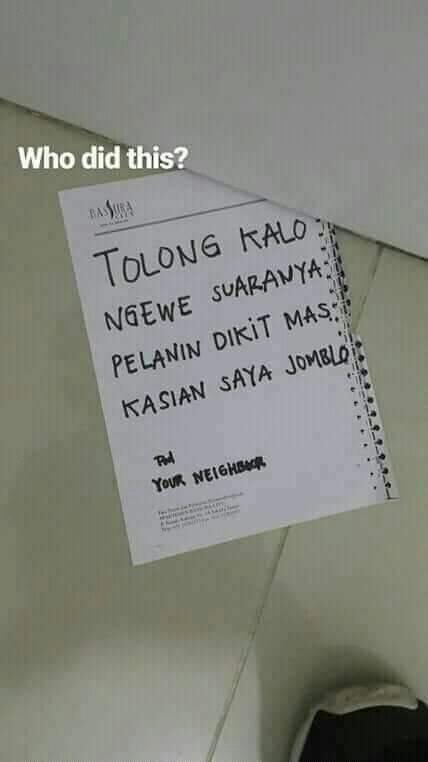 Who did this?
BASSURA
CITY
TOLONG KALO
NGEWE SUARANYA
PELANIN DIKIT MAS.
KASIAN SAYA JOMBLO
YOUR NEIGHBOOR